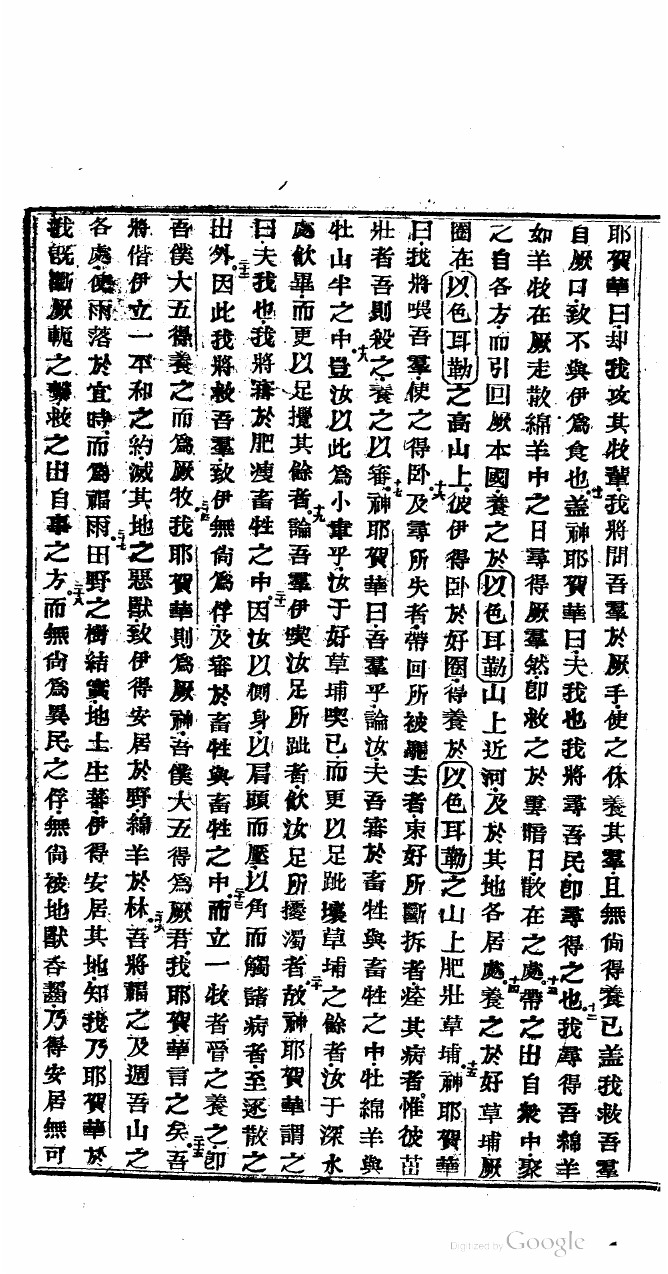 耶賀華曰却我攻其牧輩我將問吾羣於厥手使之休養其羣且無尚得養已盖我救吾羣
自厥口致不與伊為食也十一盖神耶賀華曰夫我也我將尋吾民卽尋得之也十二我尋得吾綿羊
如羊牧在厥走散綿羊中之日尋得厥羣然卽救之於雲暗日散在之處十三帶之出自衆中聚
之自各方而引回厥本國養之於以色耳勒山上近河及於其地各居處十四養之於好草埔厥
圈在以色耳勒之高山上彼伊得卧於好圈得養於以色耳勒之山上肥壯草埔十五神耶賀華
曰我將喂吾羣使之得卧十六及尋所失者帶回所被驅去者束好所斷拆者痊其病者惟彼茁
壯者吾則殺之養之以審十七神耶賀華曰吾羣乎論汝夫吾審於畜牲與畜牲之中牡綿羊與
牡山羊之中十八豈汝以此為小事乎汝于好草埔喫已而更以足跐壞草埔之餘者汝于深水
處飲畢而更以足攪其餘者十九論吾羣伊喫汝足所跐者飲汝足所擾濁者二十故神耶賀華謂之
曰夫我也我將審於肥瘦畜牲之中二十一因汝以側身以肩頭而壓以角而觸諸病者至逐散之
出外二十二因此我將救吾羣致伊無尚為俘及審於畜牲與畜牲之中二十三而立一牧者管之養之卽
吾僕大五得養之而為厥牧二十四我耶賀華則為厥神吾僕大五得為厥君我耶賀華言之矣二十五吾
將偕伊立一平和之約滅其地之惡獸致伊得安居於野綿羊於林二十六吾將福之及週吾山之
各處使雨落於宜時而為福雨二十七田野之樹結實地土生蕃伊得安居其地知我乃耶賀華於
我旣斷厥軛之繫救之出自事之方二十八而無尚為異民之俘無尚被地獸吞齧乃得安居無可
Digitized by Google